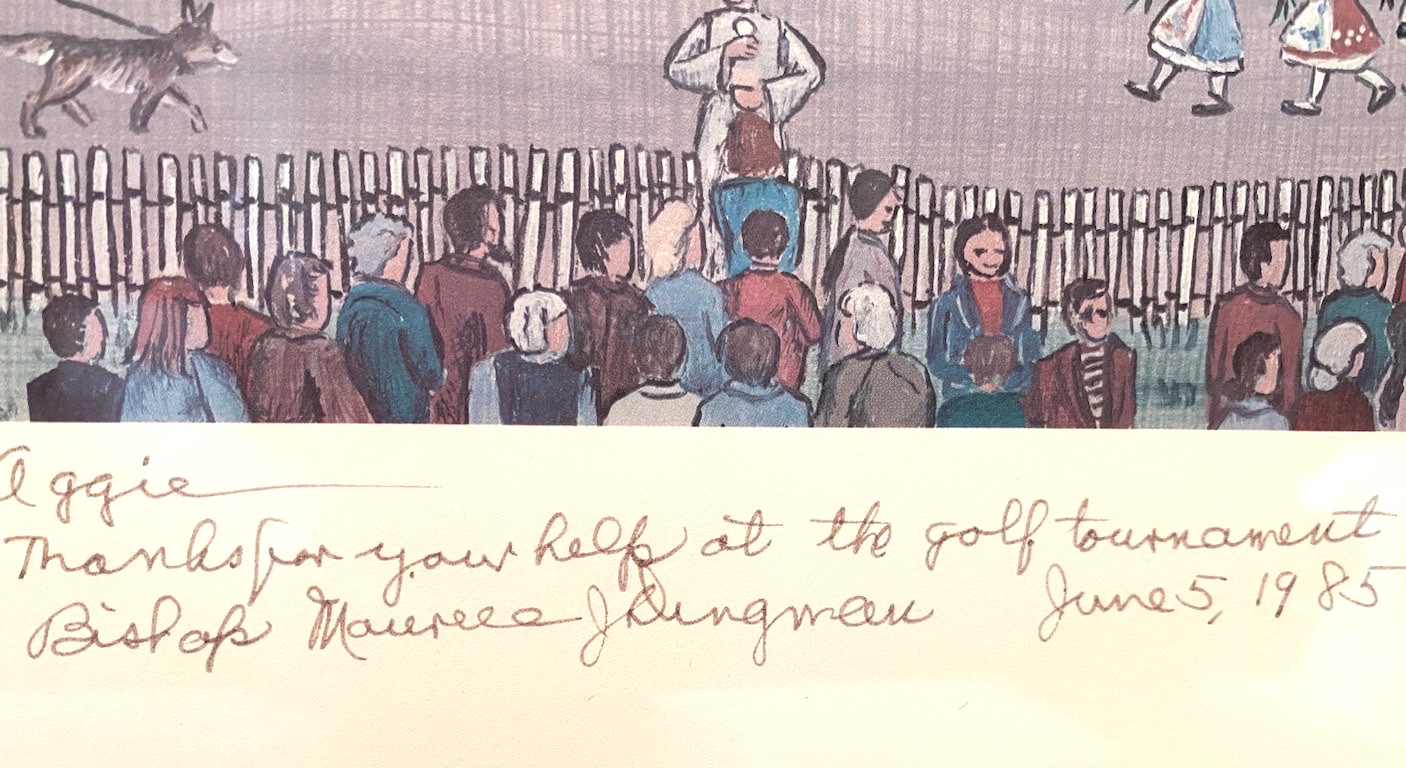 Aggie
Thanks for your help at the golf tournament
Bishop Maurice J Dingman June 5, 1985